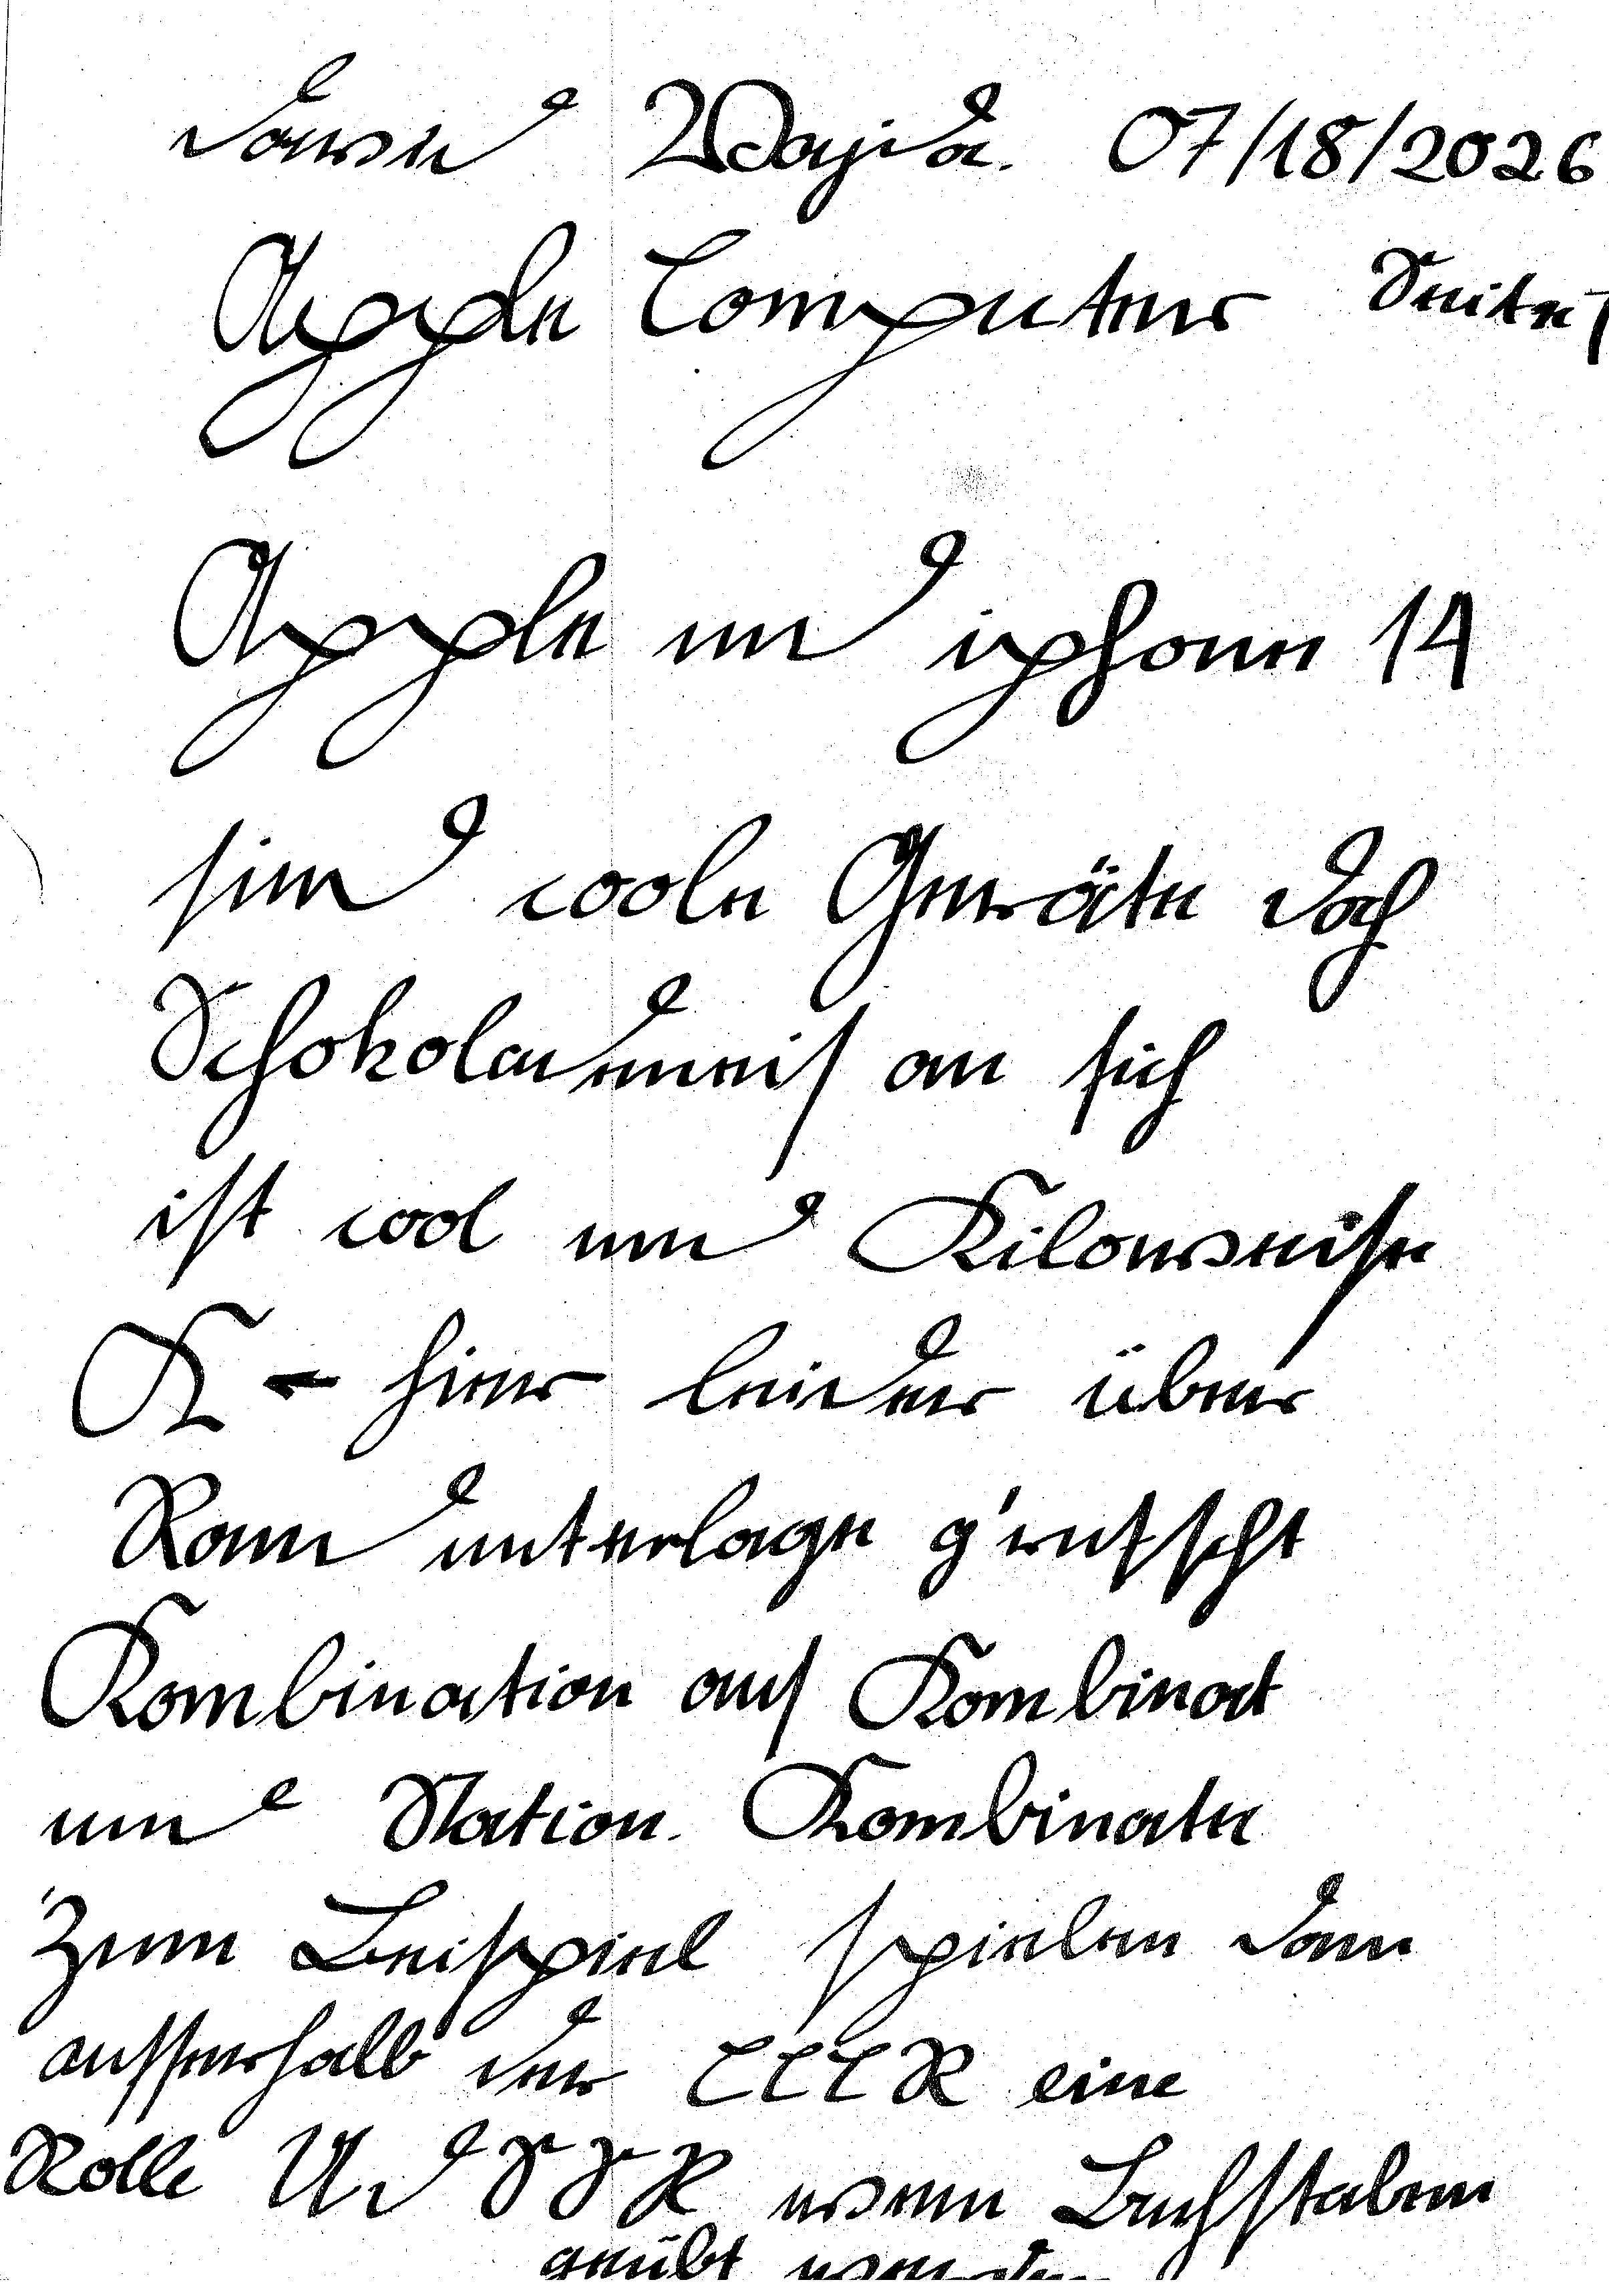 David Wajda. 07/18/2026
Apple Computer Seite 1
Apple und iphone 14
sind coole Geräte doch
Schokoladeneis an sich
ist cool und Kiloweise
K - hier leider über
Randunterlage g'rutscht
Kombination aus Kombinat
und Station. Kombinate
Zum Beispiel spielen dann
ausserhalb der CCCR eine
Rolle UdSSR wenn Buchstaben
geübt werden